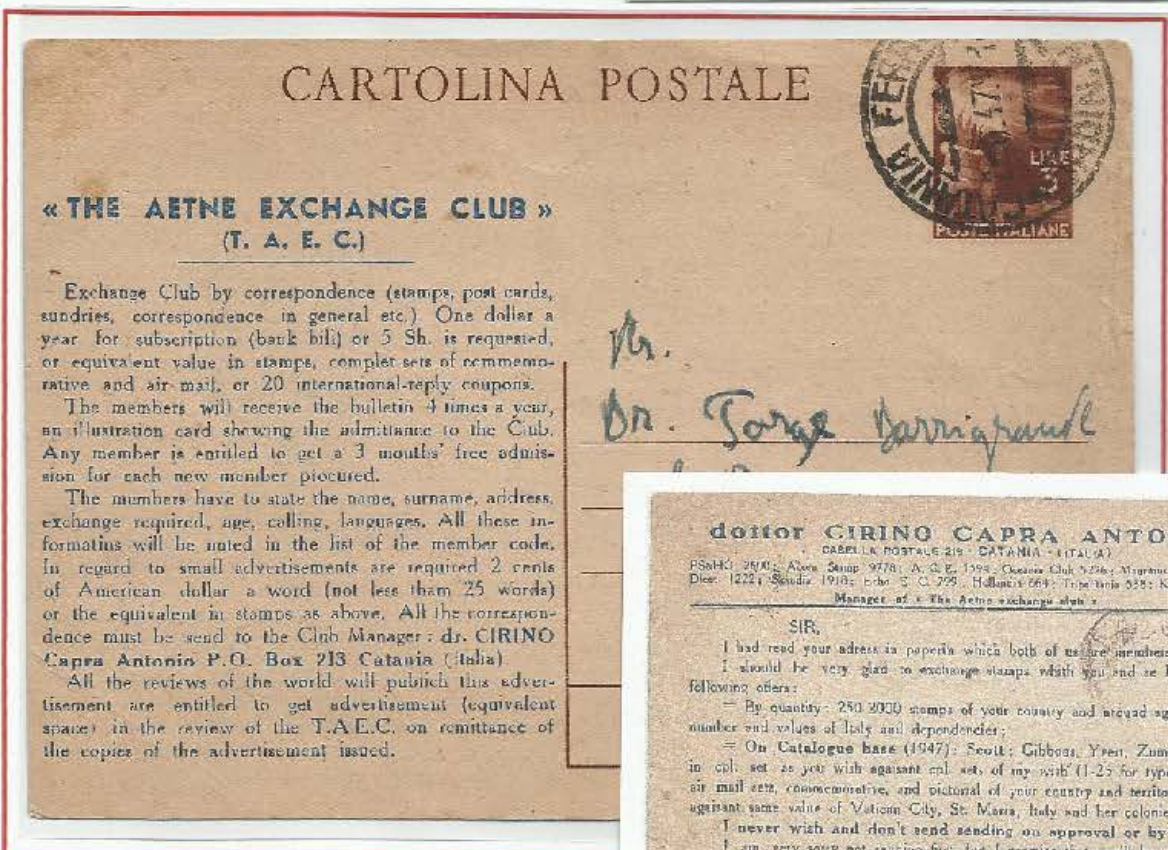 CARTOLINA POSTALE
« THE AETNE EXCHANGE CLUB »
(T. A. E. C.)
Exchange Club by correspondence (stamps, post cards,
sundries, correspondence in general etc.) One dollar a
year for subscription (bank bill) or 5 Sh. is requested,
or equivalent value in stamps, complet sets of commemo-
rative and air mail, or 20 international-reply coupons.
The members will receive the bulletin 4 times a year,
an illustration card showing the admittance to the Club.
Any member is entitled to get a 3 mouths' free admis-
sion for each new member procured.
The members have to state the name, surname, address,
exchange required, age, calling, languages. All these in-
formatins will be noted in the list of the member code.
In regard to small advertisements are required 2 cents
of American dollar a word (not less than 25 words)
or the equivalent in stamps as above. All the correspon-
dence must be send to the Club Manager : dr. CIRINO
Capra Antonio P.O. Box 213 Catania (Italia)
All the reviews of the world will publish this adver-
tisement are entitled to get advertisement (equivalent
space) in the review of the T.A.E.C. on remittance of
the copies of the advertisement issued.
CATANIA FERR
47
LIRE
3
POSTE ITALIANE
Dr.
dottor CIRINO CAPRA ANTO
CASELLA POSTALE 213 - CATANIA - (ITALIA)
Manager of « The Aetne exchange club »
SIR,
I had read your adress in paperin which both of us are members
I should be very glad to exchange stamps whith you and se
following offers :
= By quantity : 250-2000 stamps of your country and
number and values of Italy and dependencies ;
= On Catalogue base (1947) : Scott ; Gibbons, Yvert, Zum
in col. set as you wish agaisant col. sets of my wish (1-25 for typ
air mail sets, commemorative, and pictorial of your country and territo
agaisant same value of Vatican City, St. Marin, Italy and her colonie
I never wish and don't send sending on approval or by